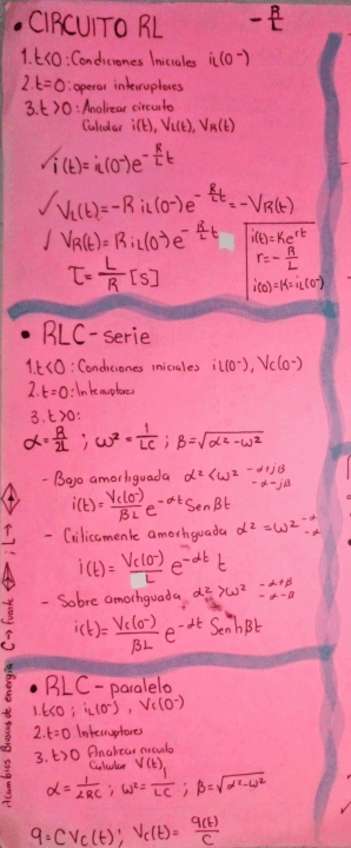 • CIRCUITO RL   - R/L
1. t<0: Condiciones Iniciales iL(0-)
2. t=0: operar interruptores
3. t>0: Analizar circuito
Calcular i(t), VL(t), VR(t)
✓ i(t)= iL(0-)e^-R/L t
✓ VL(t)=-R iL(0-)e^-R/L t = -VR(t)
✓ VR(t)= R iL(0-)e^-R/L t
τ= L/R [s]
i(t)=Ke^rt
r=-R/L
i(0)=K=iL(0-)
• RLC-serie
1. t<0: Condiciones iniciales iL(0-), Vc(0-)
2. t=0: Interruptores
3. t>0:
α=R/2L ; ω²=1/LC ; β=√α²-ω²
- Bajo amortiguada α²<ω² -α+jβ
-α-jβ
i(t)= Vc(0-)/βL e^-αt Sen βt
- Criticamente amortiguada α²=ω² -α
-α
i(t)= Vc(0-)/L e^-αt t
- Sobre amortiguada α²>ω² -α+β
-α-β
i(t)= Vc(0-)/βL e^-αt Senhβt
• RLC-paralelo
1. t<0 ; iL(0-), Vc(0-)
2. t=0 Interruptores
3. t>0 Analizar circuito
Calcular V(t)
α= 1/2RC ; ω²= 1/LC ; β=√α²-ω²
q=CVc(t); Vc(t)= q(t)/C
C→ fuente ; L→